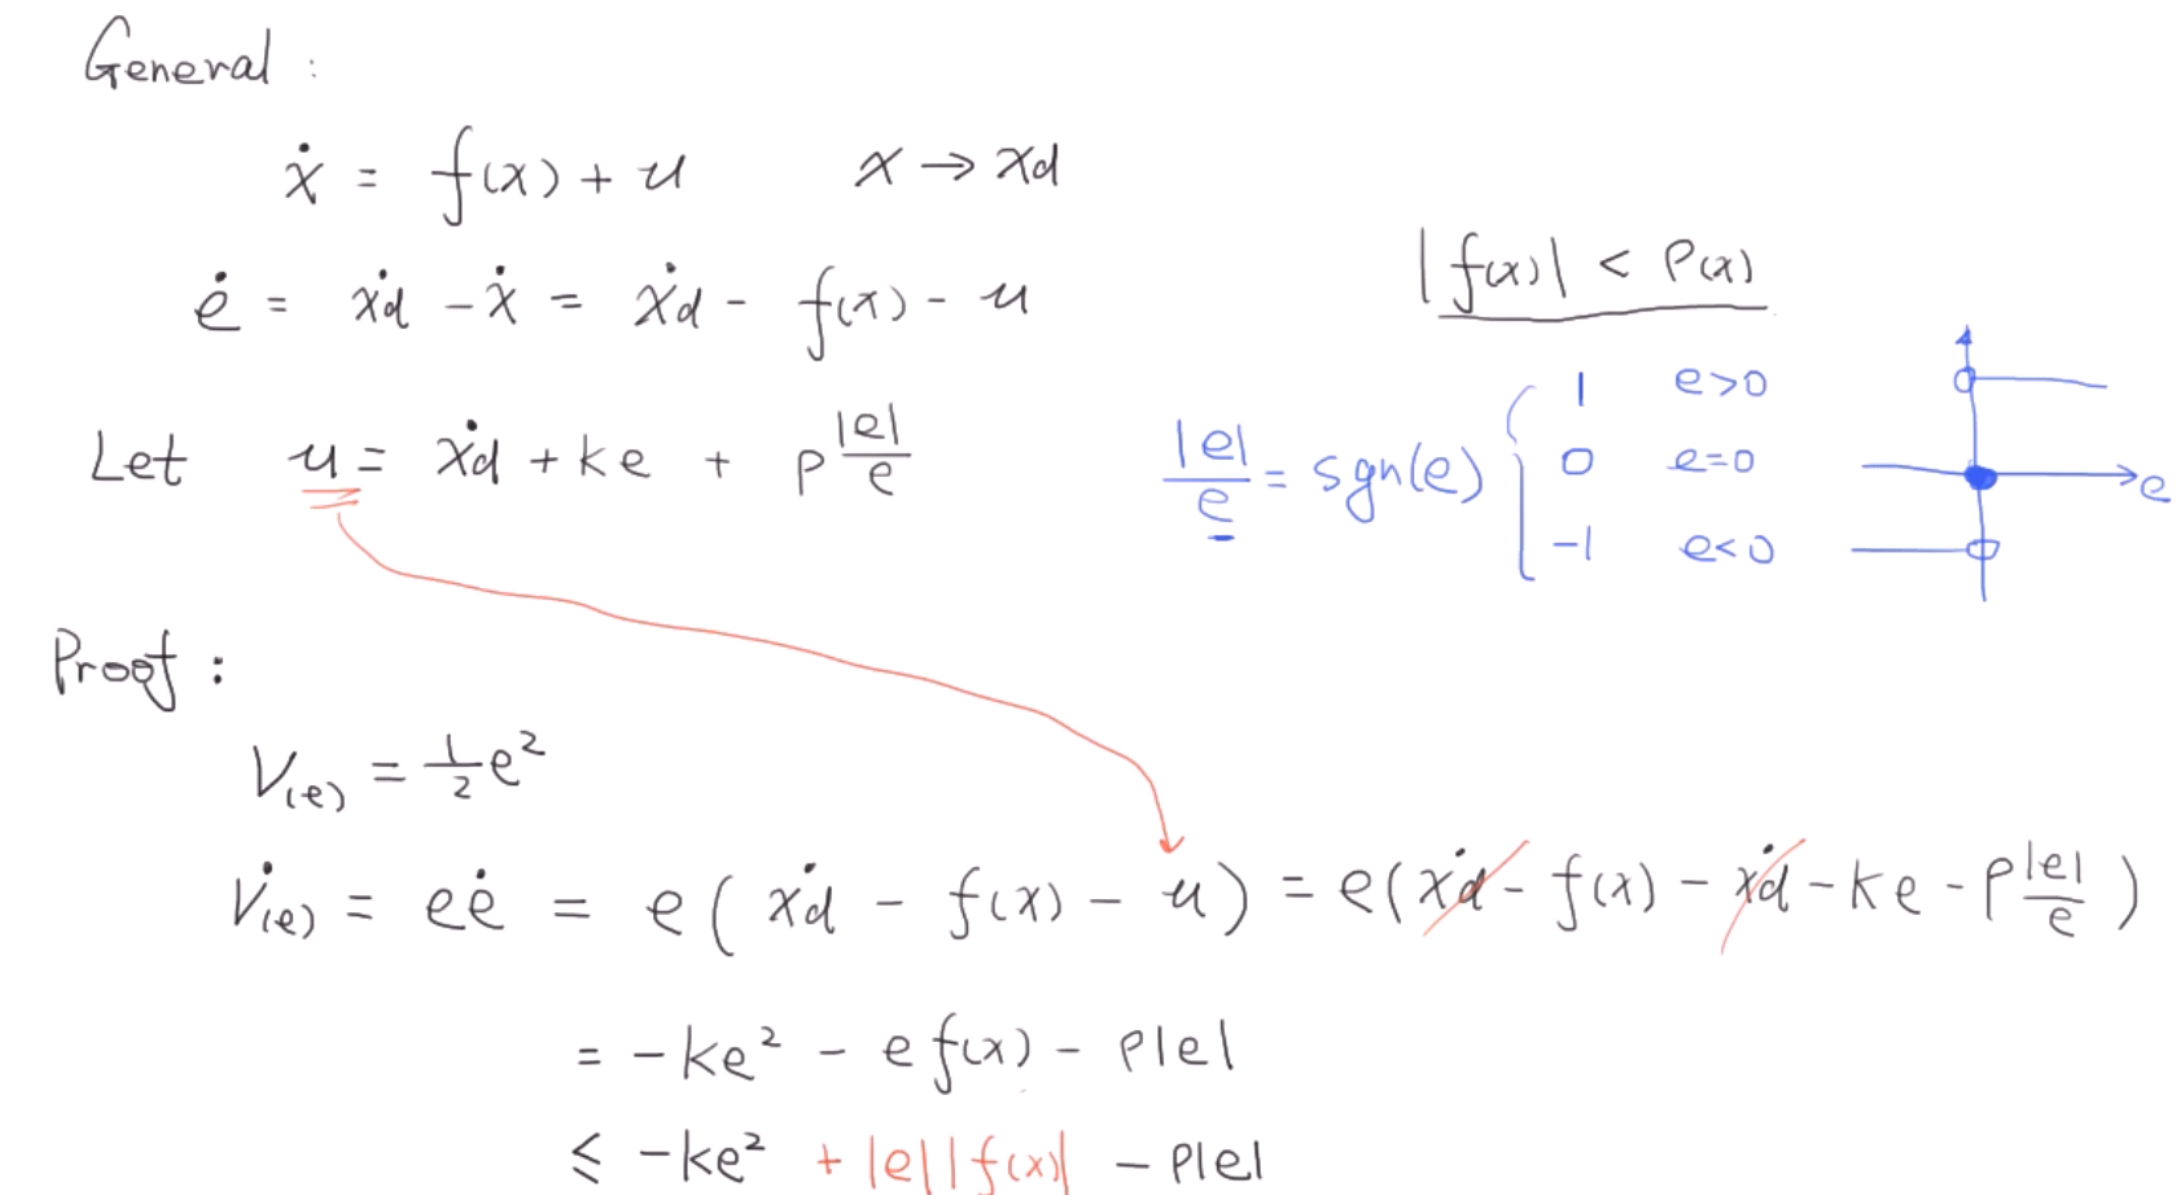 General :
ẋ = f(x) + u    x → xd
ė = ẋd - ẋ = ẋd - f(x) - u
|f(x)| < ρ(x)
Let u = ẋd + ke + ρ |e|/e
|e|/e = sgn(e) { 1 e>0
0 e=0
-1 e<0
e
Proof :
V(e) = 1/2 e²
V̇(e) = eė = e( ẋd - f(x) - u ) = e( ẋd - f(x) - ẋd - ke - ρ |e|/e )
= -ke² - e f(x) - ρ|e|
≤ -ke² + |e||f(x)| - ρ|e|